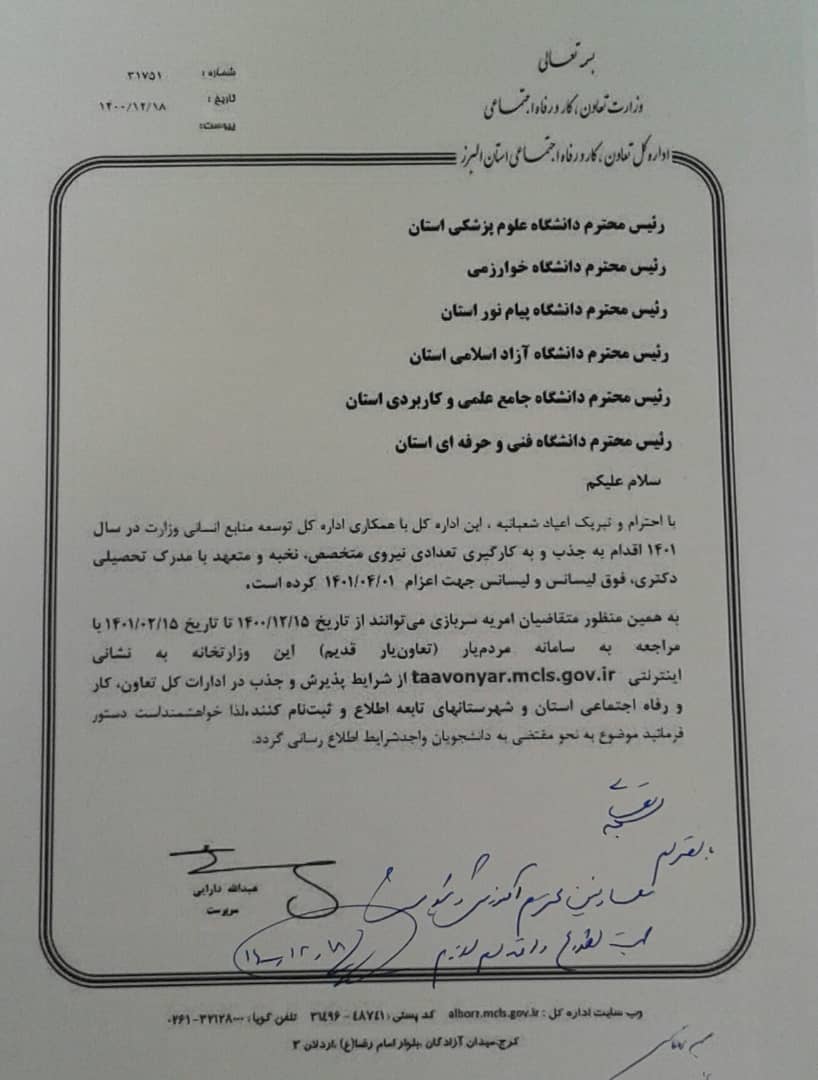 بسمه تعالی
وزارت تعاون، کار و رفاه اجتماعی
اداره کل تعاون، کار و رفاه اجتماعی استان البرز
شماره : ۳۱۷۵۱
تاریخ : ۱۴۰۰/۱۲/۱۸
پیوست:
رئیس محترم دانشگاه علوم پزشکی استان
رئیس محترم دانشگاه خوارزمی
رئیس محترم دانشگاه پیام نور استان
رئیس محترم دانشگاه آزاد اسلامی استان
رئیس محترم دانشگاه جامع علمی و کاربردی استان
رئیس محترم دانشگاه فنی و حرفه ای استان
سلام علیکم
با احترام و تبریک اعیاد شعبانیه ، این اداره کل با همکاری اداره کل توسعه منابع انسانی وزارت در سال
۱۴۰۱ اقدام به جذب و به کارگیری تعدادی نیروی متخصص، نخبه و متعهد با مدرک تحصیلی
دکتری، فوق لیسانس و لیسانس جهت اعزام ۱۴۰۱/۰۴/۰۱ کرده است.
به همین منظور متقاضیان امریه سربازی می‌توانند از تاریخ ۱۴۰۰/۱۲/۱۵ تا تاریخ ۱۴۰۱/۰۲/۱۵ با
مراجعه به سامانه مردم‌یار (تعاون‌یار قدیم) این وزارتخانه به نشانی
اینترنتی taavonyar.mcls.gov.ir از شرایط پذیرش و جذب در ادارات کل تعاون، کار
و رفاه اجتماعی استان و شهرستانهای تابعه اطلاع و ثبت‌نام کنند.لذا خواهشمنداست دستور
فرمائید موضوع به نحو مقتضی به دانشجویان واجدشرایط اطلاع رسانی گردد.
عبدالله دارایی
سرپرست
معاونین محترم آموزشی و
جهت اطلاع و اقدام لازم
وب سایت اداره کل : alborz.mcls.gov.ir کد پستی : ۴۸۷۴۱ - ۳۱۴۹۶ تلفن گویا : ۳۲۱۲۸۰۰۰-۰۲۶۱
کرج-میدان آزادگان ،بلوار امام رضا(ع) ،اردلان ۳